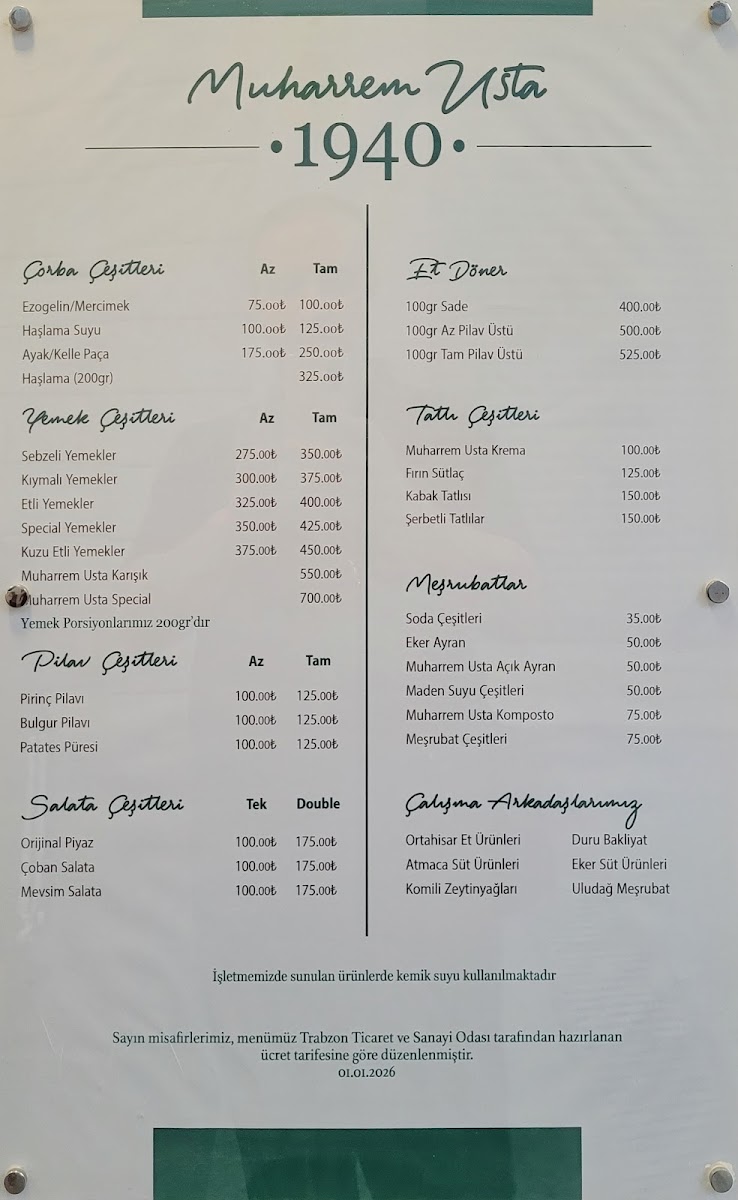 Muharrem Usta
•1940•
Çorba Çeşitleri Az Tam
Ezogelin/Mercimek 75.00₺ 100.00₺
Haşlama Suyu 100.00₺ 125.00₺
Ayak/Kelle Paça 175.00₺ 250.00₺
Haşlama (200gr) 325.00₺
Yemek Çeşitleri Az Tam
Sebzeli Yemekler 275.00₺ 350.00₺
Kıymalı Yemekler 300.00₺ 375.00₺
Etli Yemekler 325.00₺ 400.00₺
Special Yemekler 350.00₺ 425.00₺
Kuzu Etli Yemekler 375.00₺ 450.00₺
Muharrem Usta Karışık 550.00₺
Muharrem Usta Special 700.00₺
Yemek Porsiyonlarımız 200gr'dır
Pilav Çeşitleri Az Tam
Pirinç Pilavı 100.00₺ 125.00₺
Bulgur Pilavı 100.00₺ 125.00₺
Patates Püresi 100.00₺ 125.00₺
Salata Çeşitleri Tek Double
Orijinal Piyaz 100.00₺ 175.00₺
Çoban Salata 100.00₺ 175.00₺
Mevsim Salata 100.00₺ 175.00₺
Et Döner
100gr Sade 400.00₺
100gr Az Pilav Üstü 500.00₺
100gr Tam Pilav Üstü 525.00₺
Tatlı Çeşitleri
Muharrem Usta Krema 100.00₺
Fırın Sütlaç 125.00₺
Kabak Tatlısı 150.00₺
Şerbetli Tatlılar 150.00₺
Meşrubatlar
Soda Çeşitleri 35.00₺
Eker Ayran 50.00₺
Muharrem Usta Açık Ayran 50.00₺
Maden Suyu Çeşitleri 50.00₺
Muharrem Usta Komposto 75.00₺
Meşrubat Çeşitleri 75.00₺
Çalışma Arkadaşlarımız
Ortahisar Et Ürünleri Duru Bakliyat
Atmaca Süt Ürünleri Eker Süt Ürünleri
Komili Zeytinyağları Uludağ Meşrubat
İşletmemizde sunulan ürünlerde kemik suyu kullanılmaktadır
Sayın misafirlerimiz, menümüz Trabzon Ticaret ve Sanayi Odası tarafından hazırlanan
ücret tarifesine göre düzenlenmiştir.
01.01.2026